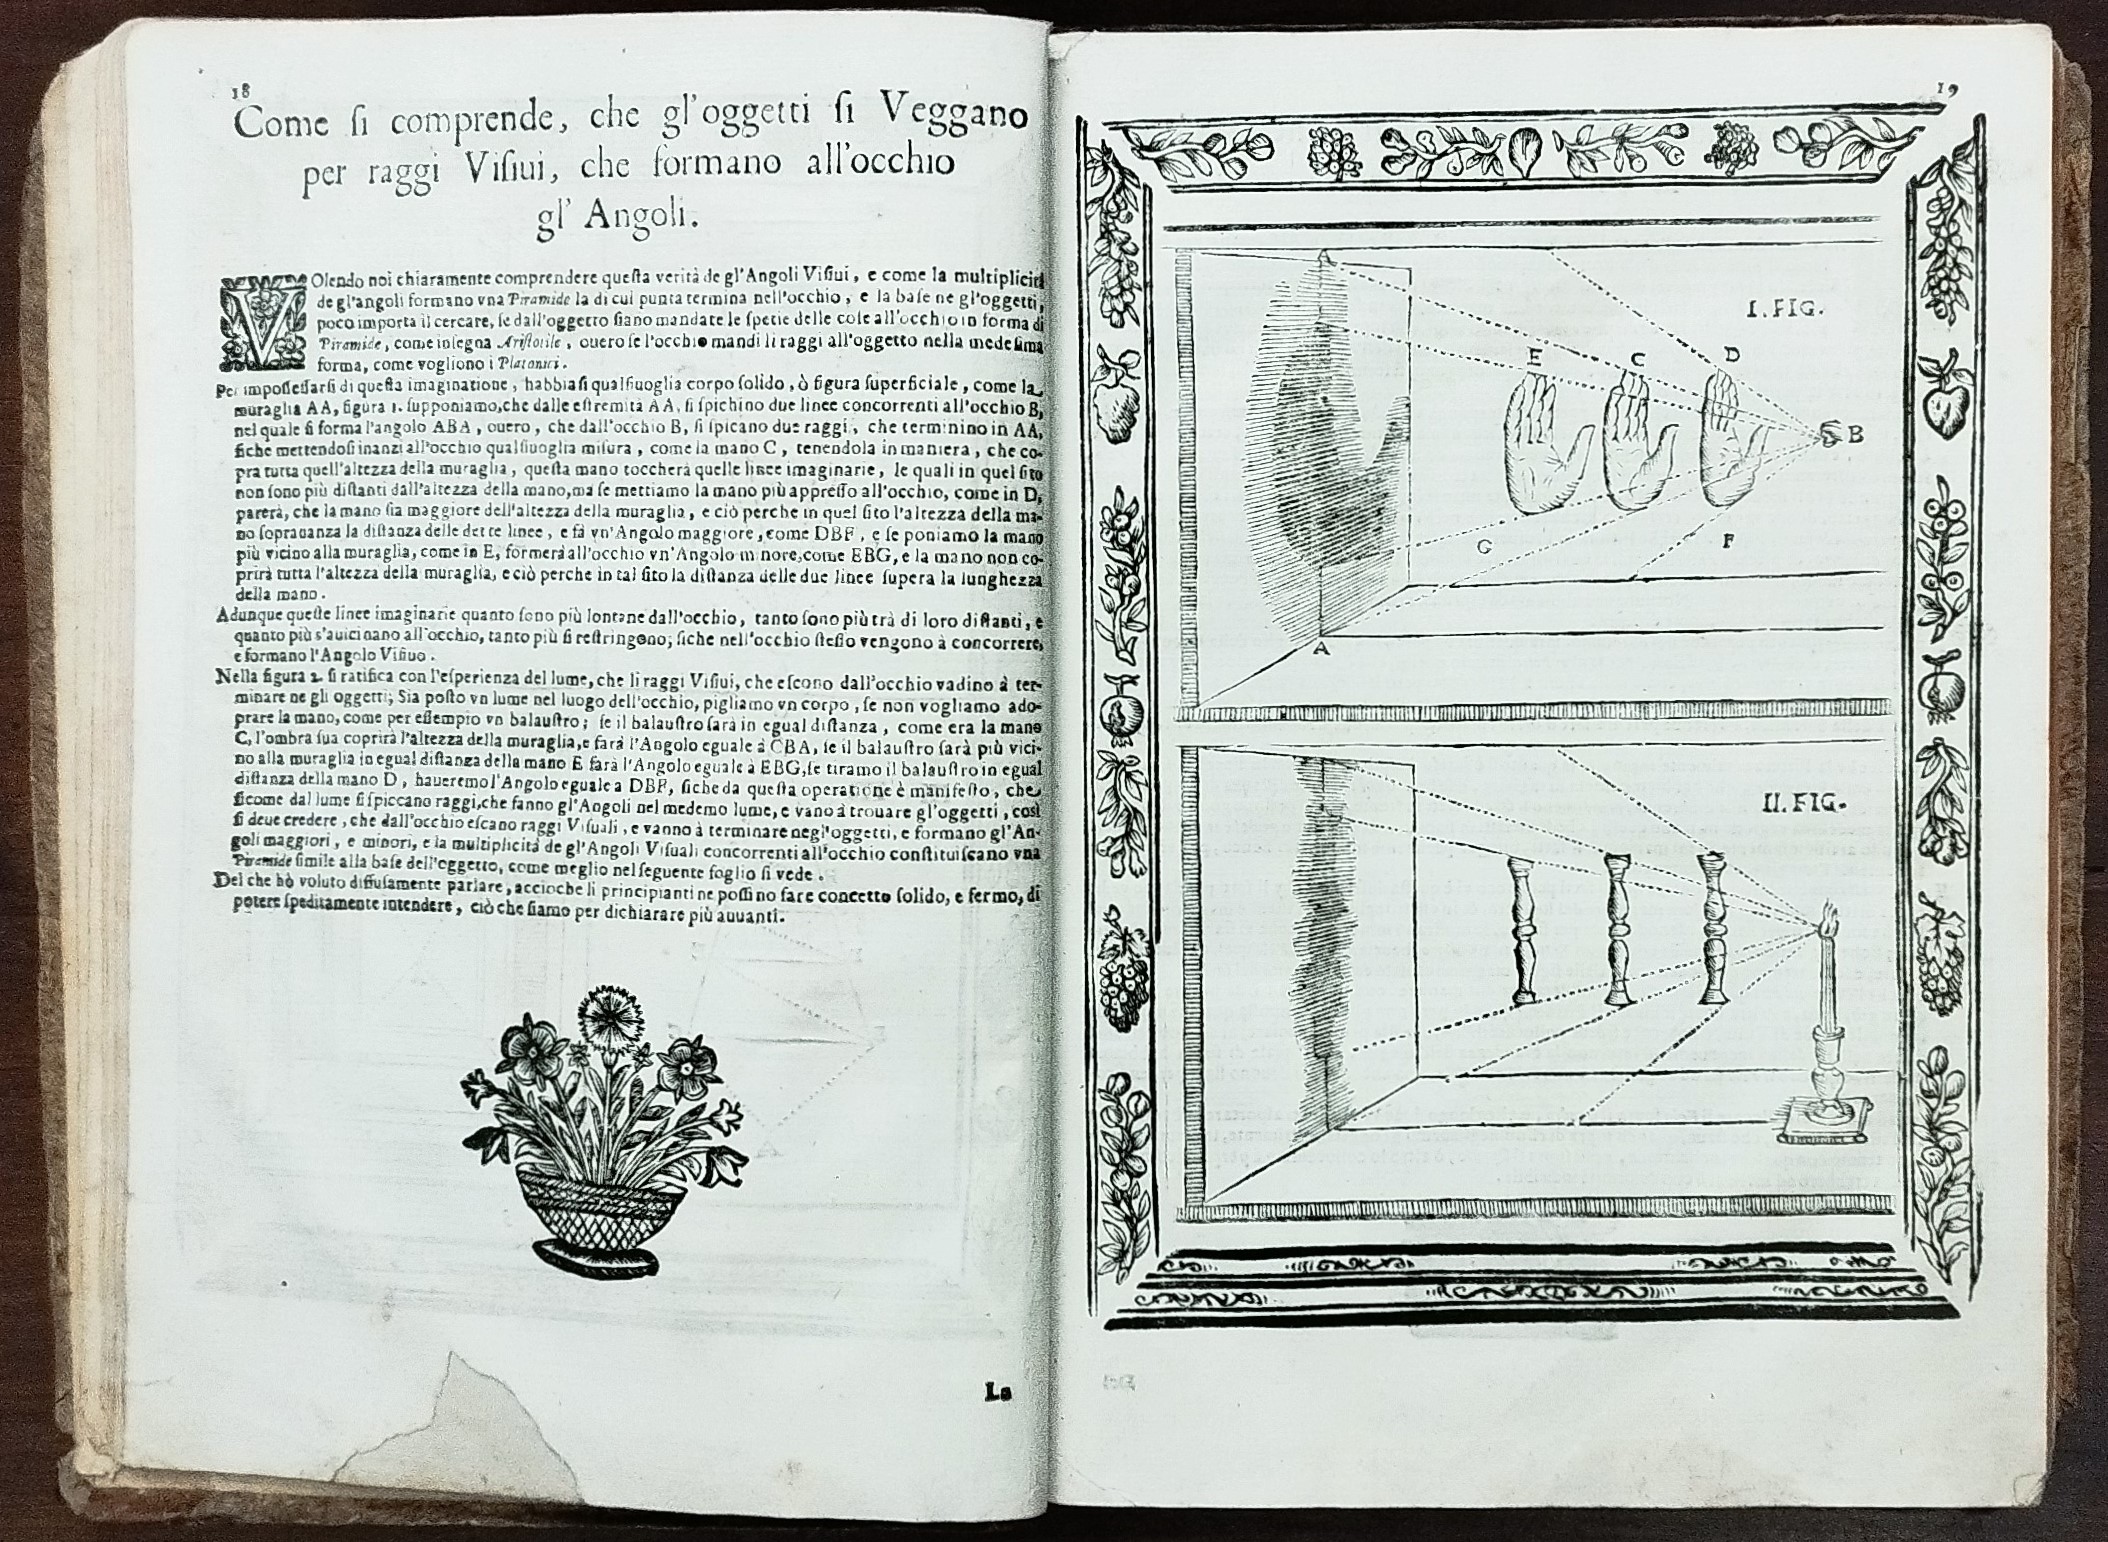 18
Come ſi comprende, che gl'oggetti ſi Veggano
per raggi Viſiui, che formano all'occhio
gl' Angoli.
VOlendo noi chiaramente comprendere queſta verità de gl'Angoli Viſiui, e come la multiplicità
de gl'angoli formano vna Piramide la di cui punta termina nell'occhio, e la baſe ne gl'oggetti,
poco importa il cercare, ſe dall'oggetto ſiano mandate le ſpetie delle coſe all'occhio in forma di
Piramide, come inſegna Ariſtotile, ouero ſe l'occhio mandi li raggi all'oggetto nella medeſima
forma, come vogliono i Platonici.
Per impoſſeſſarſi di queſta imaginatione, habbiaſi qualſiuoglia corpo ſolido, ò figura ſuperficiale, come la
muraglia AA, figura 1. ſupponiamo, che dalle eſtremità AA, ſi ſpichino due linee concorrenti all'occhio B,
nel quale ſi forma l'angolo ABA, ouero, che dall'occhio B, ſi ſpicano due raggi, che terminino in AA,
ſiche mettendoſi inanzi all'occhio qualſiuoglia miſura, come la mano C, tenendola in maniera, che co-
pra tutta quell'altezza della muraglia, queſta mano toccherà quelle linee imaginarie, le quali in quel ſito
non ſono più diſtanti dall'altezza della mano, ma ſe mettiamo la mano più appreſſo all'occhio, come in D,
parerà, che la mano ſia maggiore dell'altezza della muraglia, e ciò perche in quel ſito l'altezza della ma-
no ſoprauanza la diſtanza delle dette linee, e fà vn'Angolo maggiore, come DBF, e ſe poniamo la mano
più vicino alla muraglia, come in E, formerà all'occhio vn'Angolo minore, come EBG, e la mano non co-
prirà tutta l'altezza della muraglia, e ciò perche in tal ſito la diſtanza delle due linee ſupera la lunghezza
della mano.
Adunque queſte linee imaginarie quanto ſono più lontane dall'occhio, tanto ſono più trà di loro diſtanti, e
quanto più s'auicinano all'occhio, tanto più ſi reſtringono; ſiche nell'occhio ſteſſo vengono à concorrere,
e formano l'Angolo Viſiuo.
Nella figura 2. ſi ratifica con l'eſperienza del lume, che li raggi Viſiui, che eſcono dall'occhio vadino à ter-
minare ne gli oggetti; Sia poſto vn lume nel luogo dell'occhio, pigliamo vn corpo, ſe non vogliamo ado-
prare la mano, come per eſſempio vn balauſtro; ſe il balauſtro ſarà in egual diſtanza, come era la mano
C, l'ombra ſua coprirà l'altezza della muraglia, e farà l'Angolo eguale à CBA, ſe il balauſtro ſarà più vici-
no alla muraglia in egual diſtanza della mano E farà l'Angolo eguale à EBG, ſe tiramo il balauſtro in egual
diſtanza della mano D, haueremo l'Angolo eguale a DBF, ſiche da queſta operatione è manifeſto, che
ſicome dal lume ſi ſpiccano raggi, che fanno gl'Angoli nel medemo lume, e vano à trouare gl'oggetti, così
ſi deue credere, che dall'occhio eſcano raggi Viſuali, e vanno à terminare negl'oggetti, e formano gl'An-
goli maggiori, e minori, e la multiplicità de gl'Angoli Viſuali concorrenti all'occhio conſtituiſcano vna
Piramide ſimile alla baſe dell'oggetto, come meglio nel ſeguente foglio ſi vede.
Del che hò voluto diffuſamente parlare, accioche li principianti ne poſſino fare concetto ſolido, e fermo, di
potere ſpeditamente intendere, ciò che ſiamo per dichiarare più auuanti.
La
19
A
I. FIG.
E C D
B
G F
A
II. FIG.